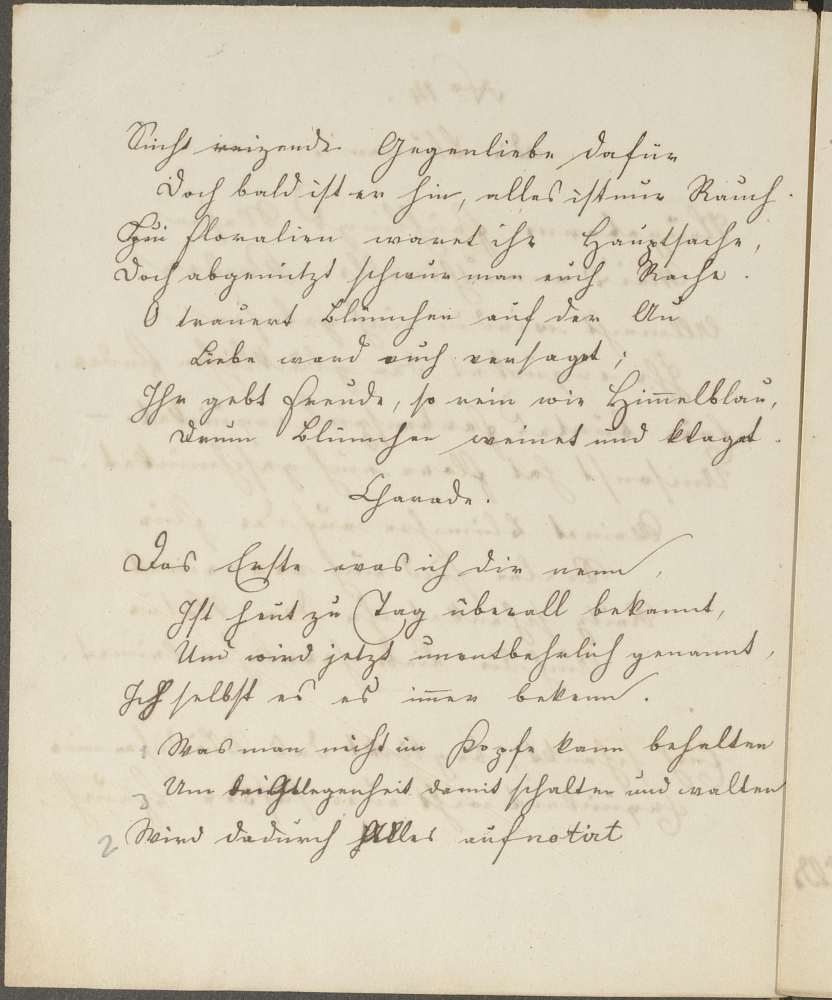 Sucht reizende Gegenliebe dafür
Doch bald ist er hin, alles ist nur Rauch.
Bei Floralien waret ihr Hauptsache,
Doch abgenützt schwur man euch Rache.
O trauert Blümchen auf der Au
Liebe ward euch versaget;
Ihr gebt Freude, so rein wie Him̅elblau,
Drum Blümchen weinet und klaget.
Charade.
Das Erste was ich dir nenn,
Ist heut zu Tag überall bekannt,
Und wird jetzt unentbehrlich genannt,
Ich selbst es es im̅er bekenn.
1 Was man nicht im Kopfe kann behalten
3 Um damit schalten und walten
2 Wird dadurch Alles aufnotirt